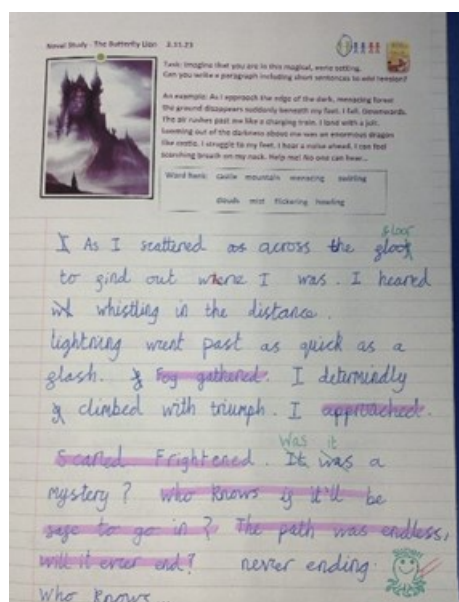 Novel Study - The Butterfly Lion 2.11.23
Task: Imagine that you are in this magical, eerie setting.
Can you write a paragraph including short sentences to add tension?
An example: As I approach the edge of the dark, menacing forest
the ground disappears suddenly beneath my feet. I fall. Downwards.
The air rushes past me like a charging train. I land with a jolt.
Looming out of the darkness above me was an enormous dragon
like castle. I struggle to my feet. I hear a noise ahead. I can feel
scorching breath on my neck. Help me! No one can hear...
Word bank: castle mountain menacing swirling
clouds mist flickering howling
floor
I As I scattered as across the
to find out where I was. I heared
whistling in the distance.
lightning went past as quick as a
flash. Fog gathered. I determindly
climbed with triumph. I approached.
Was it
Scared. Frightened. It was a
mystery? Who knows if it'll be
safe to go in? The path was endless,
will it ever end? never ending.
Who knows